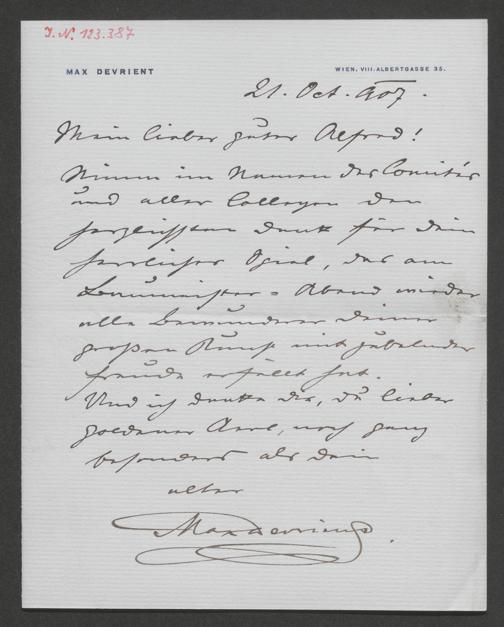 I.N. 123.387
MAX DEVRIENT
WIEN, VIII. ALBERTGASSE 35.
21. Oct. 907.
Mein lieber guter Alfred!
Nimm im Namen des Comités
und aller Collegen den
herzlichsten Dank für dein
herrliches Spiel, das am
Baumeister-Abend wieder
alle Bewunderer deiner
großen Kunst mit jubelnder
Freude erfüllt hat.
Und ich danke dir, du lieber
goldener Kerl, noch ganz
besonders als dein
alter
Max Devrient.